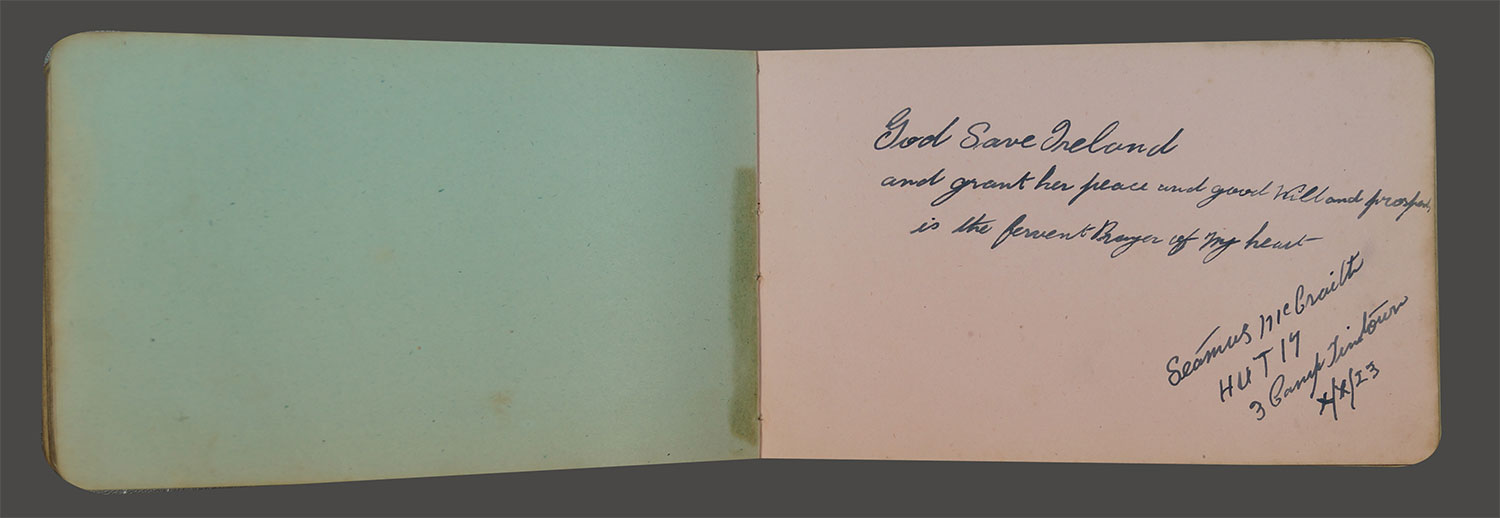 God Save Ireland
and grant her peace and good Will and
is the fervent Prayer of My heart
Seámus McCraith
HUT 17
3 Camp Tintown
X/X/23